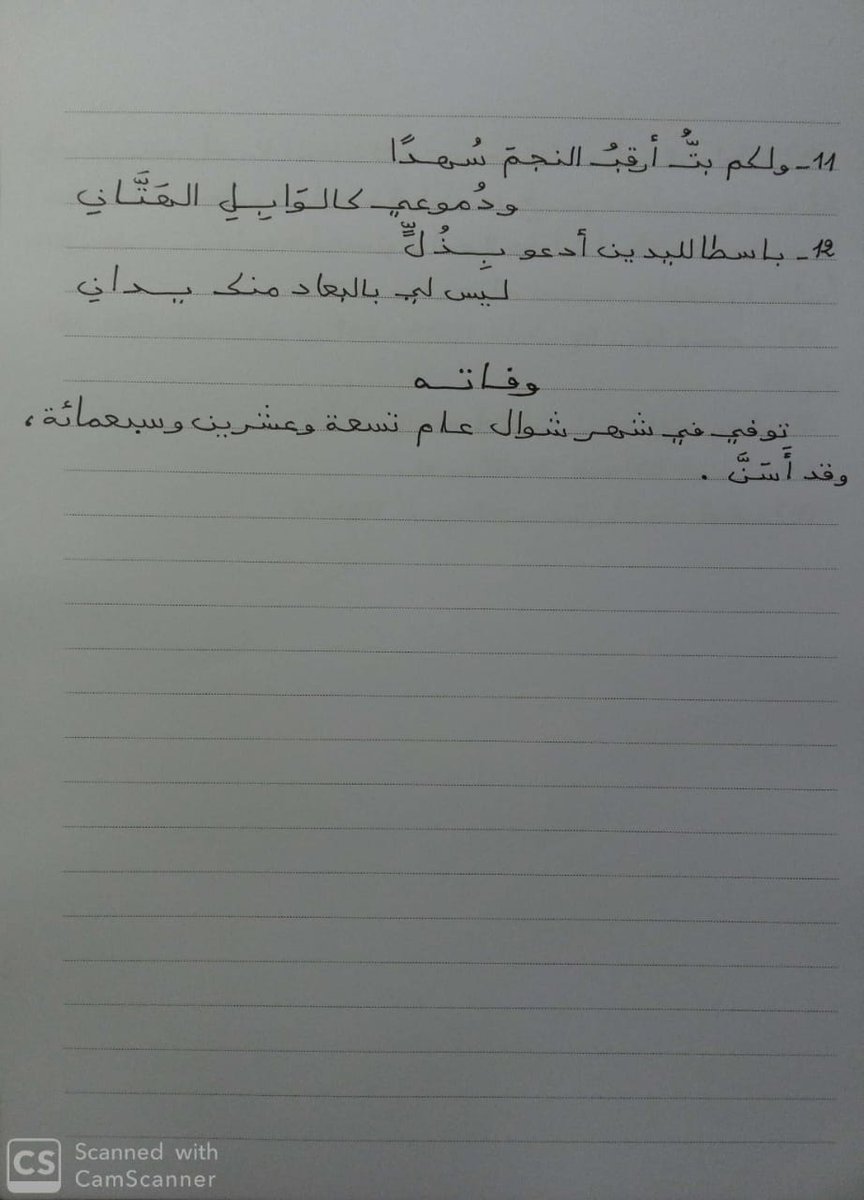 11- ولكم بتُّ أرقبُ النجمَ سُهدًا
ودُموعي كالوَابِلِ الهَتَّاني
12- باسطا لليدين أدعو بِذُلٍّ
ليس لي بالبعاد منك يداني
وفاته
توفي في شهر شوال عام تسعة وعشرين وسبعمائة،
وقد أَسَنَّ .
CS Scanned with
CamScanner